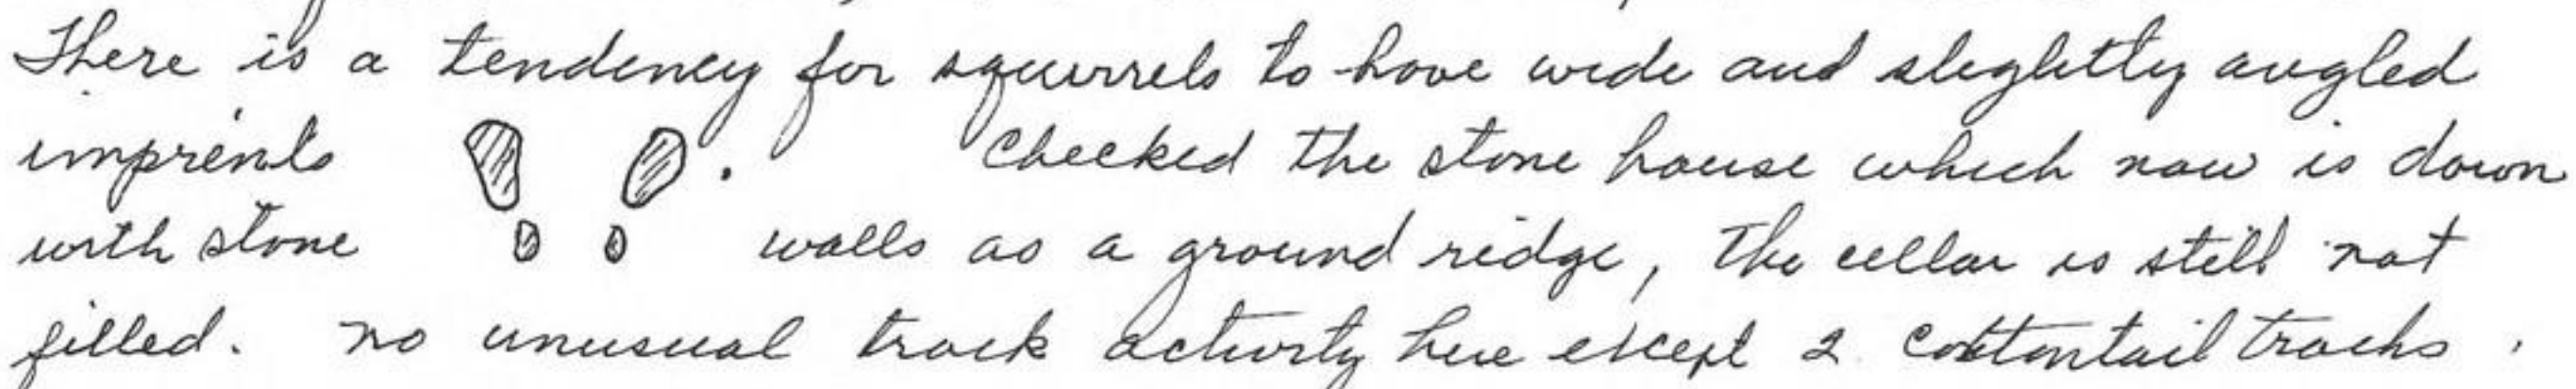 There is a tendency for squirrels to have wide and slightly angled
imprints . Checked the stone house which now is down
with stone walls as a ground ridge, The cellar is still not
filled. No unusual track activity here except 2 cottontail tracks.